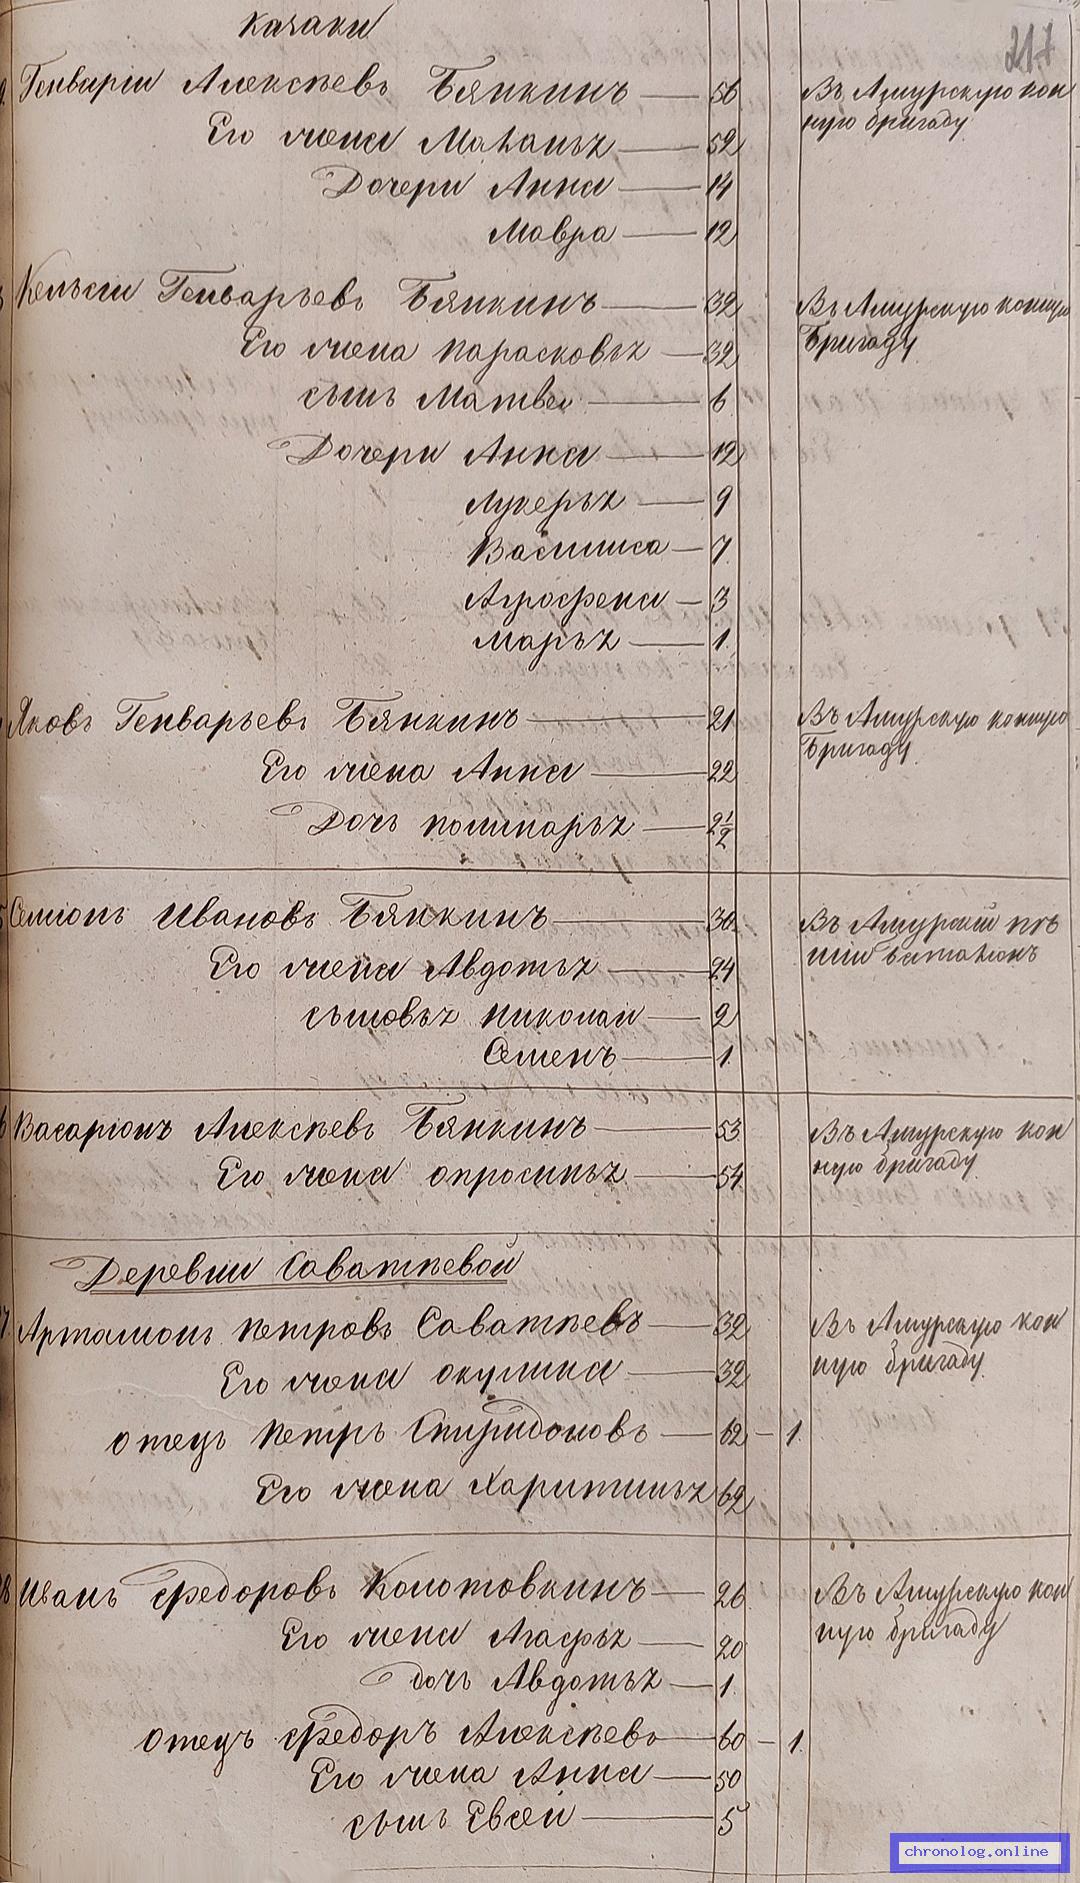 Казаки
217
Генварiй Алексѣевъ Бянкинъ — 56 Въ Амурскую кон
ную бригаду
Его жена Маланья — 52
Дочери Анна — 14
Мавра — 12
Кельсiй Генварьевъ Бянкинъ — 32 Въ Амурскую конную
Бригаду
Его жена Парасковья — 32
сынъ Матвей — 6
Дочери Анна — 12
Лукерья — 9
Василиса — 7
Агрофена — 3
Марья — 1.
Яковъ Генварьевъ Бянкинъ — 21 Въ Амурскую конную
Бригаду
Его жена Анна — 22
Дочь Полинарья — 2 1/2
Семiонъ Ивановъ Бянкинъ — 30. Въ Амурскiй пѣ
шiй баталiонъ
Его жена Авдотья — 24
сыновья Николай — 2
Семенъ — 1.
Васарiонъ Алексѣевъ Бянкинъ — 53 Въ Амурскую кон
ную бригаду
Его жена Опросинья — 54
Деревни Саватѣевой
Артамонъ Петровъ Саватѣевъ — 32 Въ Амурскую кон
ную бригаду
Его жена Окулина — 32
отецъ Петръ Спиридоновъ — 62 — 1.
Его жена Харитинья 62
28 Иванъ Федоровъ Колотовкинъ — 26 Въ Амурскую кон
ную бригаду
Его жена Агафья — 20
дочь Авдотья — 1.
Отецъ Федоръ Алексѣевъ — 60 — 1.
Его жена Анна — 50
сынъ Евсей — 5
chronolog.online